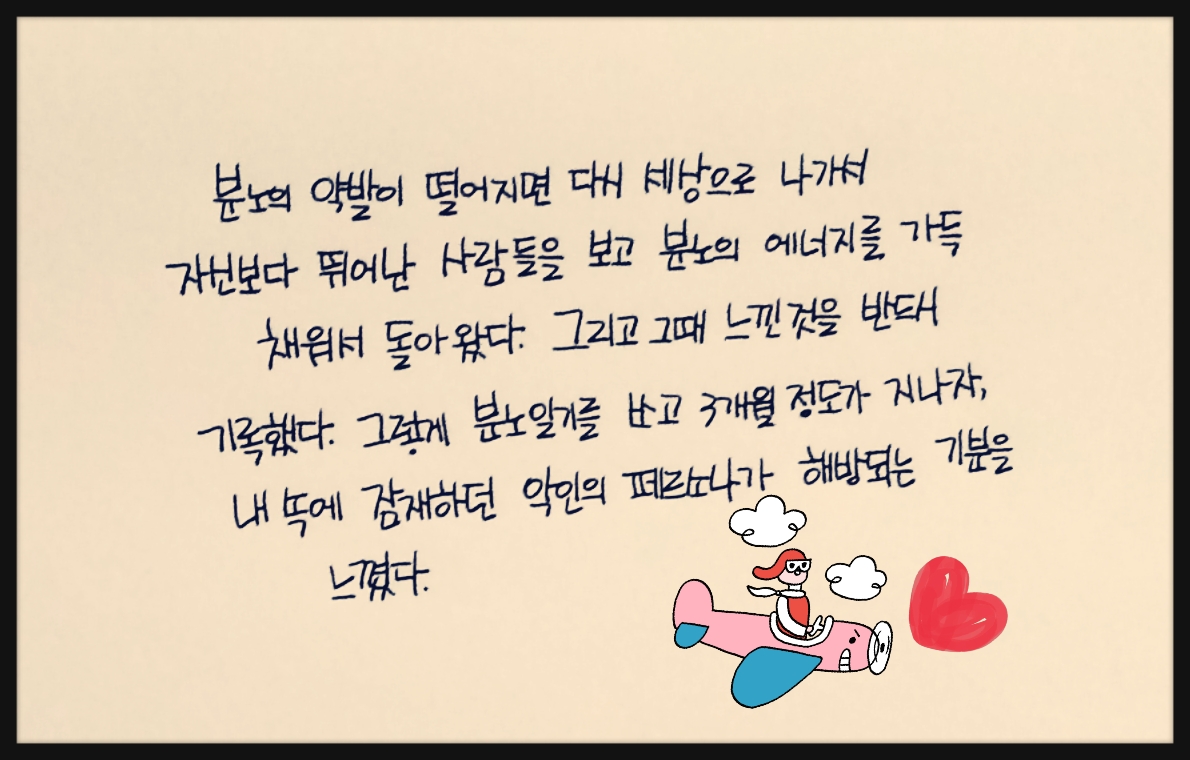 분노의 약발이 떨어지면 다시 세상으로 나가서
자신보다 뛰어난 사람들을 보고 분노의 에너지를 가득
채워서 돌아왔다. 그리고 그때 느낀것을 반드시
기록했다. 그렇게 분노일기를 쓰고 3개월 정도가 지나자,
내 속에 잠재하던 악인의 페르소나가 해방되는 기분을
느꼈다.